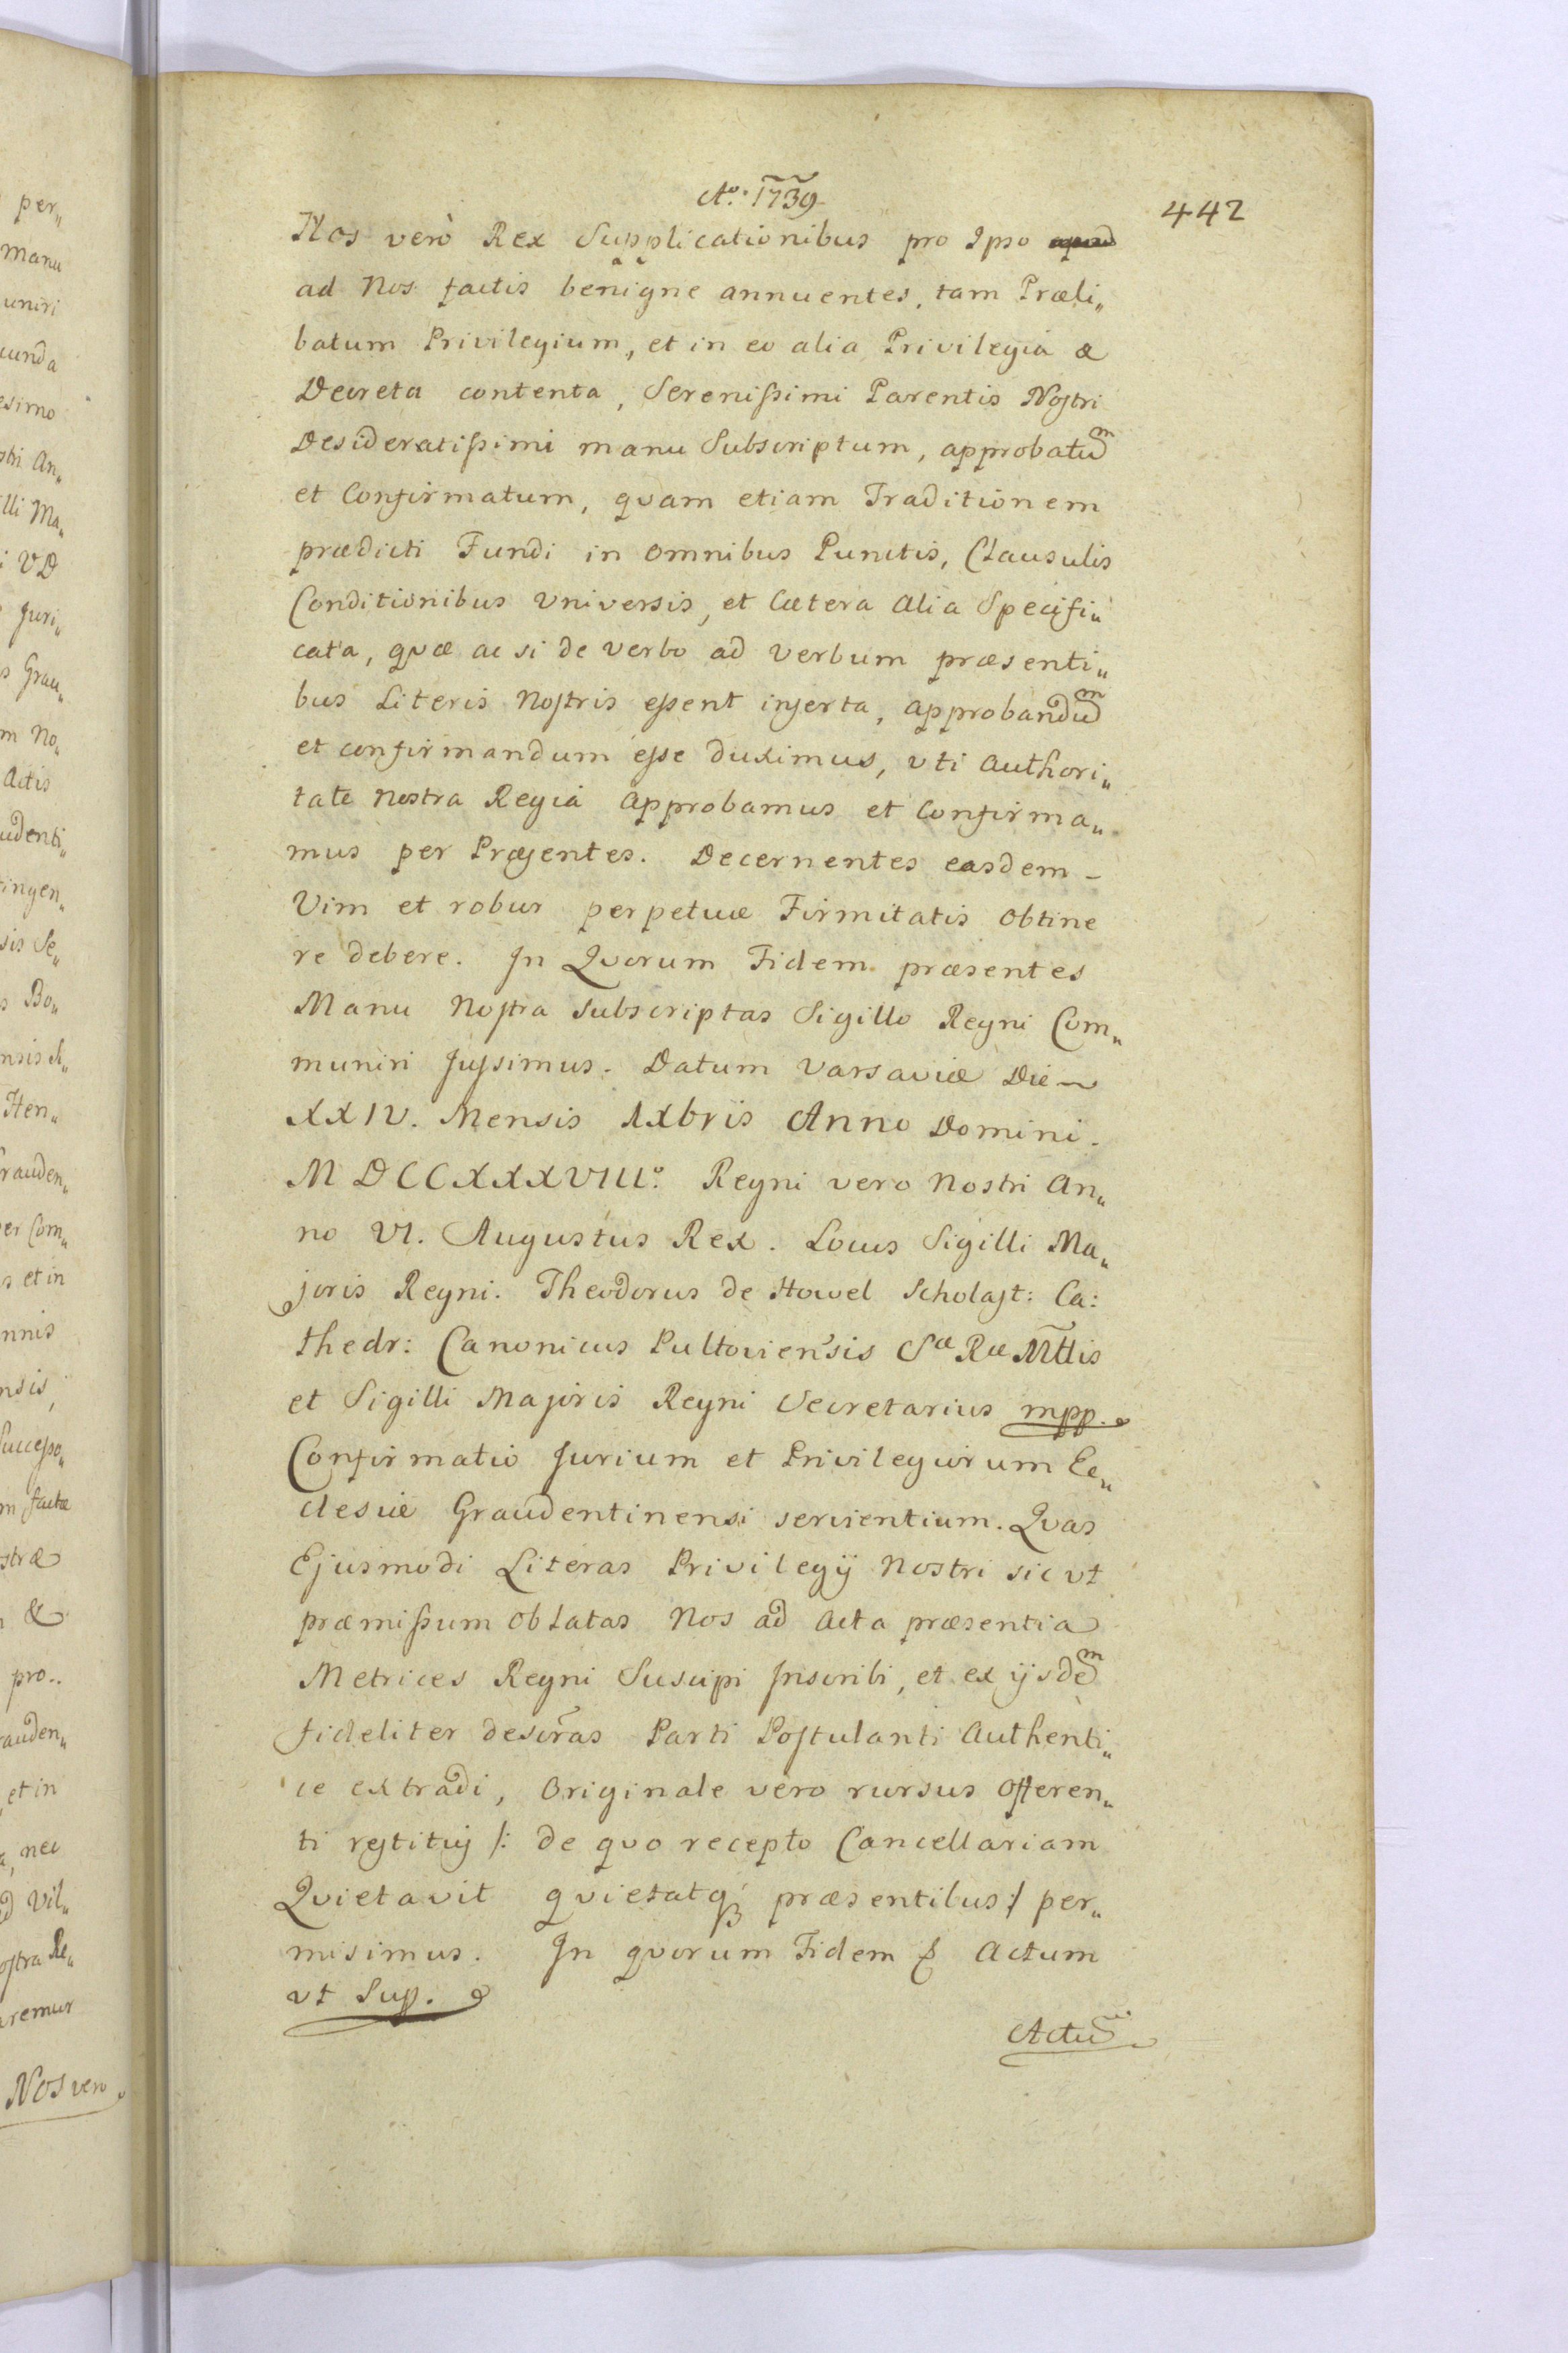 per„
manu
uniri
cunda
esimo
stri An„
illi Ma„
i VD
Juri„
s Grau„
m No„
Actis
udenti„
tingen„
sis Se„
s Bo„
ensis A„
Hen„
rauden„
er Com„
s et in
nnis
nsis,
Successo„
m factæ
stræ
&
pro..
auden„
, et in
a, nec
Vil„
ostra Re„
remur
Nos vero
Aº: 1739
442
Nos verò Rex Supplicationibus pro Ipso apud
ad Nos factis benigne annuentes, tam Præli„
batum Privilegium, et in eo alia Privilegia &
Decreta contenta, Serenissimi Parentis Nostri
Desideratissimi manu Subscriptum, approbatum
et Confirmatum, quam etiam Traditionem
prædicti Fundi in omnibus Punctis, Clausulis
Conditionibus Universis, et Cætera Alia Specifi„
cata, quæ ac si de verbo ad verbum præsenti„
bus Literis Nostris essent inserta, approbandum
et confirmandum esse duximus, uti Authori„
tate Nostra Regiâ approbamus et Confirma„
mus per Præsentes. Decernentes easdem –
Vim et robur perpetuæ Firmitatis obtine
re debere. In Quorum Fidem præsentes
Manu Nostra Subscriptas Sigillo Regni Com„
muniri Jussimus. Datum Varsaviæ Die ~
XXIV. Mensis Xbris Anno Domini.
MDCCXXXVIIIº: Regni vero Nostri An„
no VI. Augustus Rex. Locus Sigilli Ma„
joris Regni. Theodorus de Howel Scholast: Ca:
thedr: Canonicus Pultoviensis Sæ Ræ Mttis
et Sigilli Majoris Regni Secretarius mpp.
Confirmatio Jurium et Privilegiorum Ec„
clesiæ Graudentinensi servientium. Quas
Ejusmodi Literas Privilegij Nostri sic ut
præmissum oblatas Nos ad Acta præsentia
Metrices Regni Suscipi Inscribi, et ex ijsdem
fideliter descr̃as Parti Postulanti Authenti„
ce extradi, Originale vero rursus offeren„
ti restitui /: de quo recepto Cancellariam
Quietavit quietatq; præsentibus :/ per„
misimus. In quorum Fidem & Actum
ut Sup.
Actum